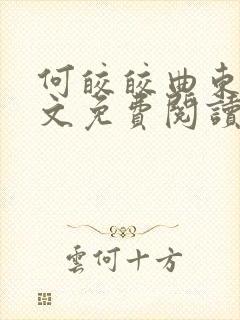 何皎皎曲東
文免費閱讀
雲何十方